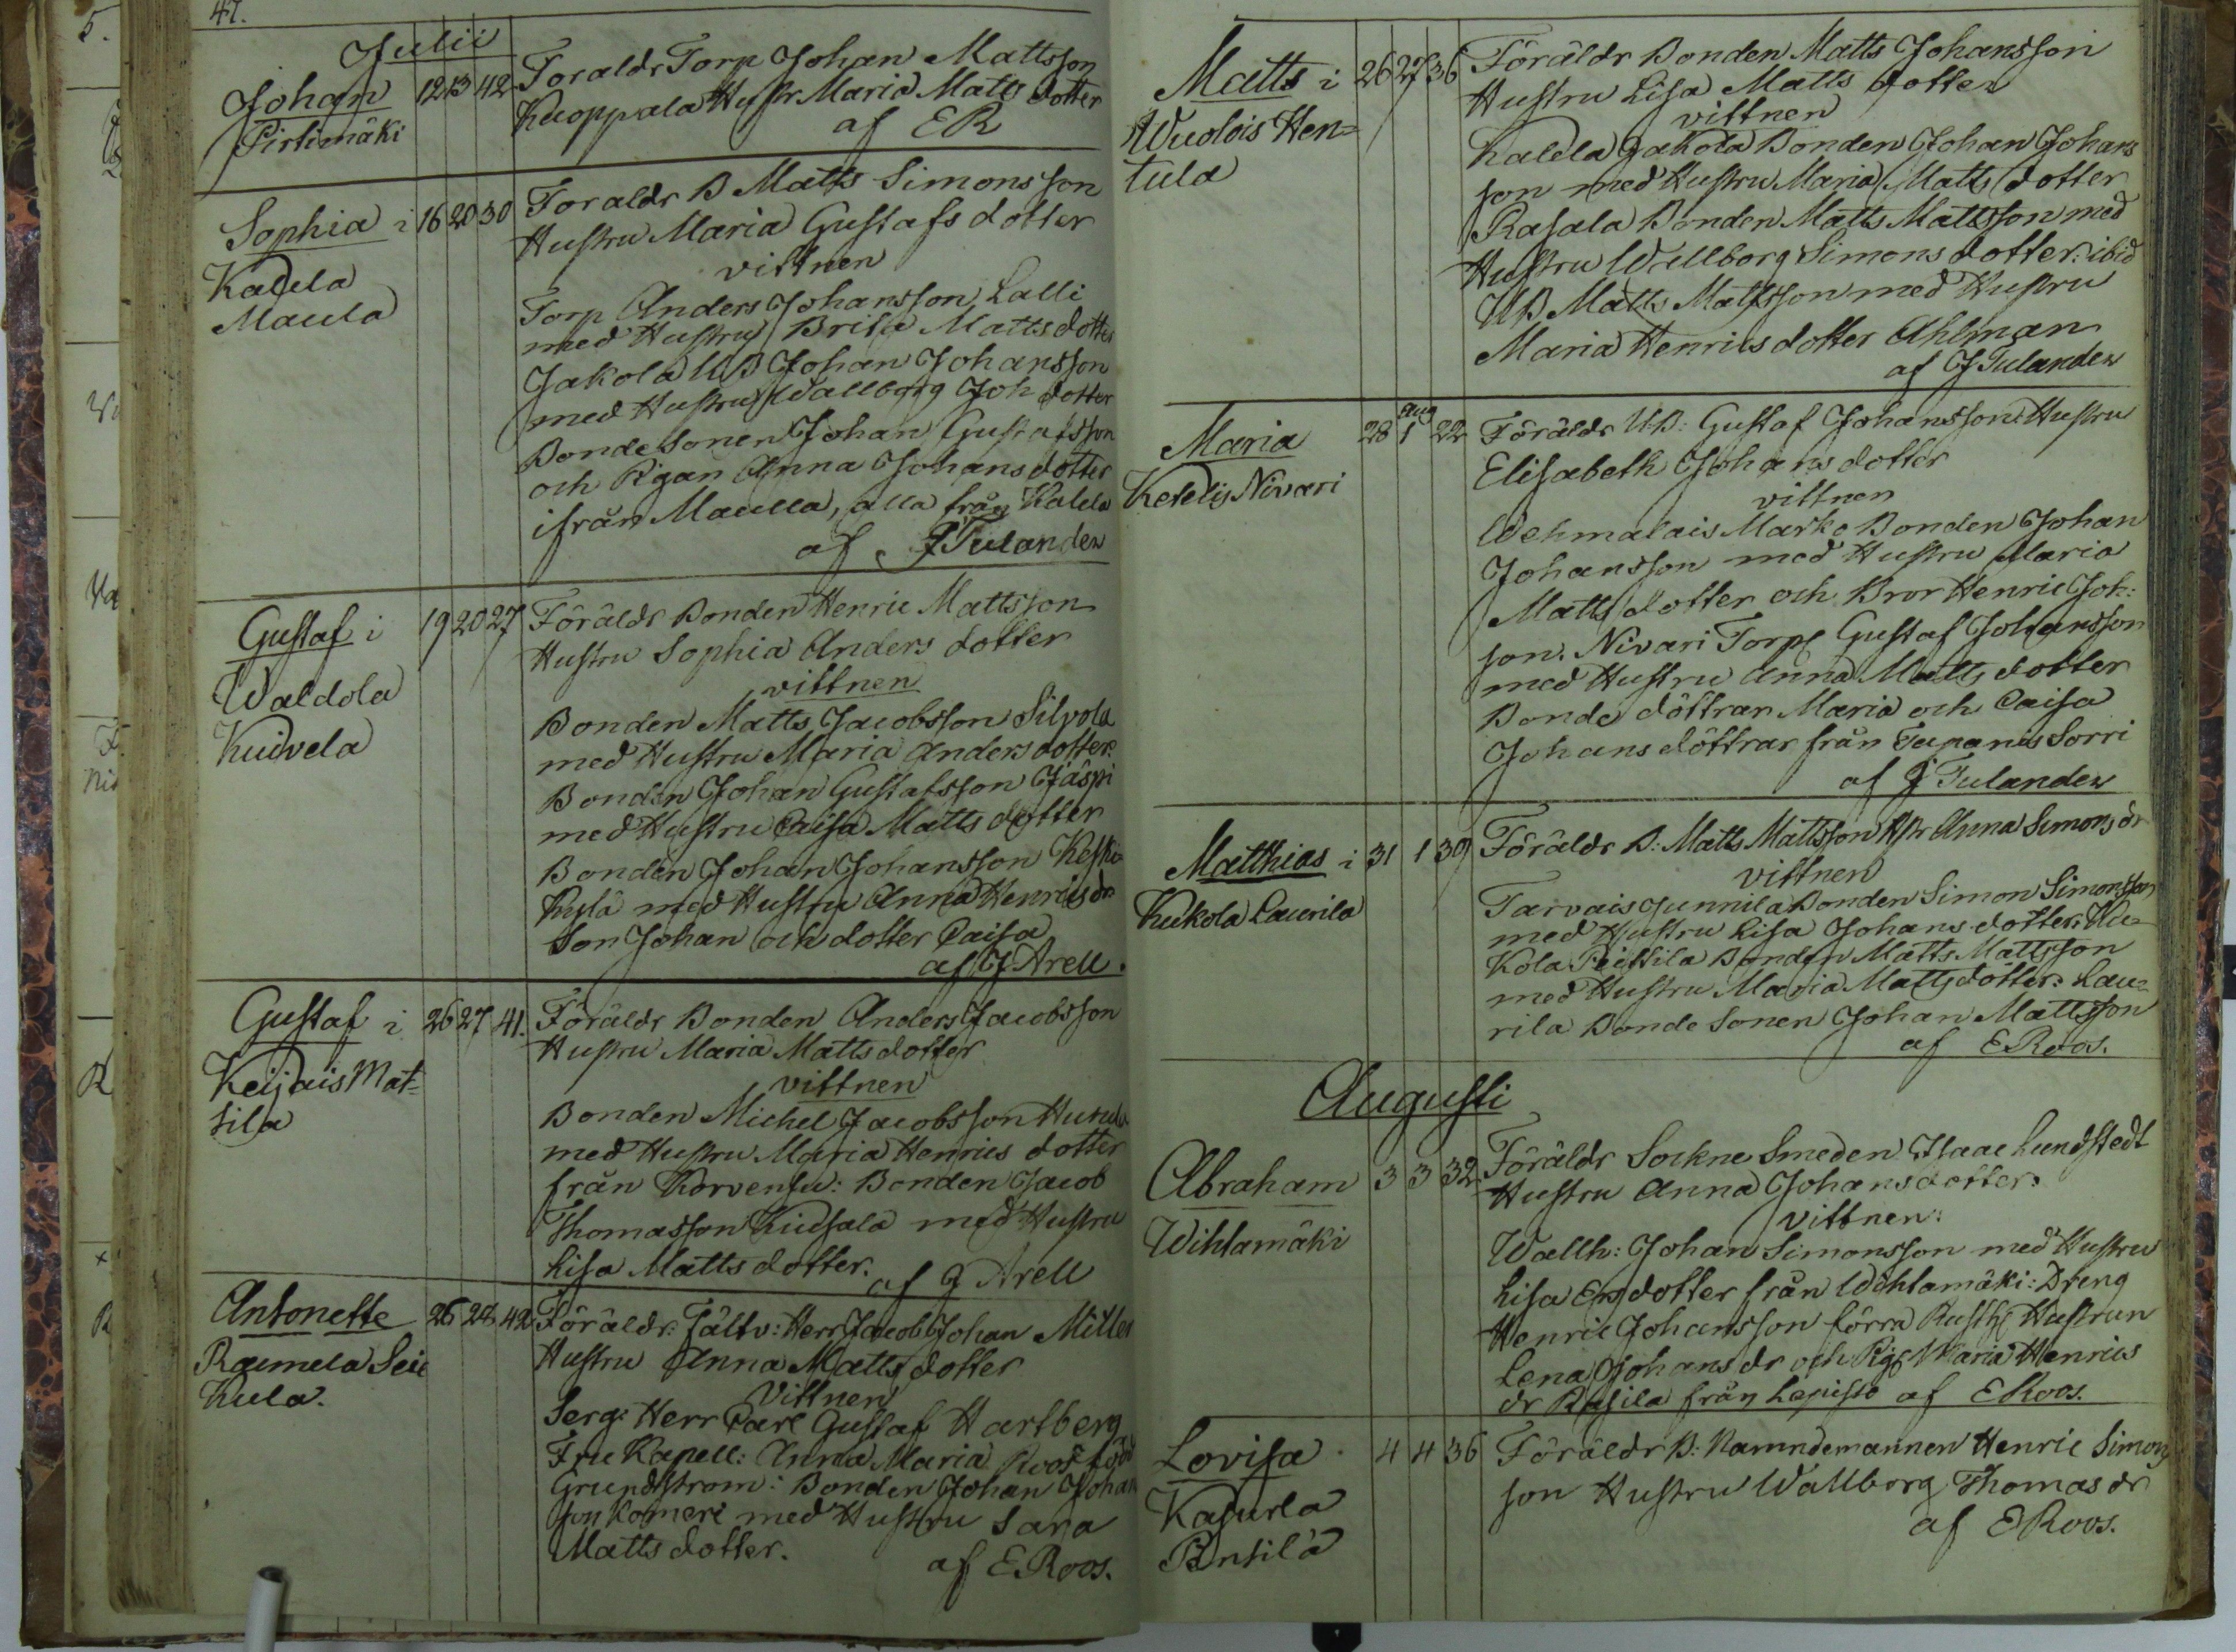 47.
Julii
Johan 12 13 42 Foraldr Torp Johan Mattsson
Pirtimäki Kuoppala Hustr Maria Matts dotter
af ER
Sophia i 16 20 30 Foraldr B Matts Simonsson
Kalela Hustru Maria Gustafs dotter
Maula vittnen
Torp Anders Johansson Lalli
med Hustru Brita Matts dotter
Jakola UB Johan Johansson
med Hustru Wallborg Joh dotter
Bonde sonen Johan Gustafsson
och Pigan Anna Johans dotter
ifrån Maulla, alla från Kalela
af J Tulander
Gustaf i 19 20 27 Föräldr Bonden Henric Mattsson
Waldola Hustru Sophia Anders dotter
Kuivela vittnen
Bonden Matts Jacobsson Silvola
med Hustru Maria Anders dotter:
Bonden Johan Gustafsson Jäspi
med Hustru Caisa Matts dotter
Bonden Johan Johansson Keski=
kylä med Hustru Anna Henrics dr
Son Johan och dotter Caisa
af J Arell.
Gustaf i 26 27 41. Föräldr Bonden Anders Jacobsson
Keijais Mat= Hustru Maria Matts dotter
tila vittnen
Bonden Michel Jacobsson
med Hustru Maria Henrics dotter
från Korvensu: Bonden Jacob
Thomasson Kusala med Hustru
Lisa Matts dotter.
af J Arell
Antonette 26 28 42 Föräldr: Fältv: Herr Jacob Johan Miller
Raumela Sei Hustru Anna Matts dotter
kula. Vittnen
Serg: Herr Carl Gustaf Hartberg
Fru Kapell: Anna Maria Roos född
Grundstrom: Bonden Johan Johan
son Komeri med Hustru Sara
Matts dotter.
af E Roos.
Matts i 26 27 36 Föräldr Bonden Matts Johansson
Wuolois Hen= Hustru Lisa Matts dotter
tula vittnen
Kalela Jakola Bonden Johan Johans
son med Hustru Maria Matts dotter
Rasala Bonden Matts Mattsson med
Hustru Wallborg Simons dotter: ibid
UB Matts Mattsson med Hustru
Maria Henrics dotter Ahlman
af J Tulander
Maria 28 aug 1 22 Föräldr UB: Gustaf Johansson Hustru
Ketelis Nivari Elisabeth Johans dotter
vittnen
Wehmalais Marko Bonden Johan
Johansson med Hustru Maria
Matts dotter och Bror Henric Joh:
son. Nivari Torp Gustaf Johansson
med Hustru Anna Matts dotter
Bonde döttrar Maria och Caisa
Johans döttrar från Tapanis Sorri
af J Tulander
Matthias i 31 1 39 Föräldr B: Matts Mattsson Hstr Anna Simons dr
Kukola Laurila vittnen
Tarvais Junnila Bonden Simon Simonsson
med Hustru Lisa Johans dotter: Ku=
kola Bonden Matts Mattsson
med Hustru Maria Matts dotter: Lau=
rila Bonde Sonen Johan Mattsson
af E Roos.
Augusti
Abraham 3 3 32 Föräldr Sockne Smeden Isaac Lundstedt
Wihlamäki Hustru Anna Johans dotter:
Vittnen:
Wallh: Johan Simonsson med Hustru
Lisa Ers dotter från Wihlamäki: Dreng
Henric Johansson förra Rusth Hustrun
Lena Johans dr och Pig Maria Henrics
dr Rasila från Lepistö af E Roos.
Lovisa 4 4 36 Föräldr B: Namndemannen Henric Simons
Kasurla son Hustru Wallborg Thomas dr
Pentilä af E Roos.